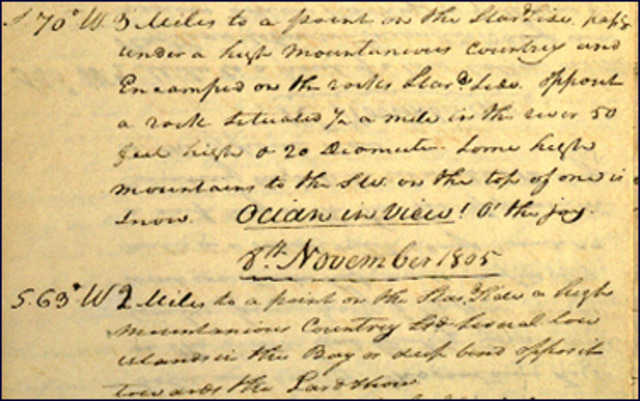 S. 70° W 3 Miles to a point on the Stard Side. passg
under a high mountaneous Countrey and
Encamped on the rocks Stard Side. opposit
a rock Situated 1/2 a mile in the river 50
feet high & 20 Deamuter. Some high
mountains to the S W. on the top of one is
Snow. Ocian in view! O! the joy.
8th November 1805
S. 63° W 2 Miles to a point on the Stard Side a high
mountanious Countrey Several low
islands in the Bay or deep bend opposit
towards the Lard Shore